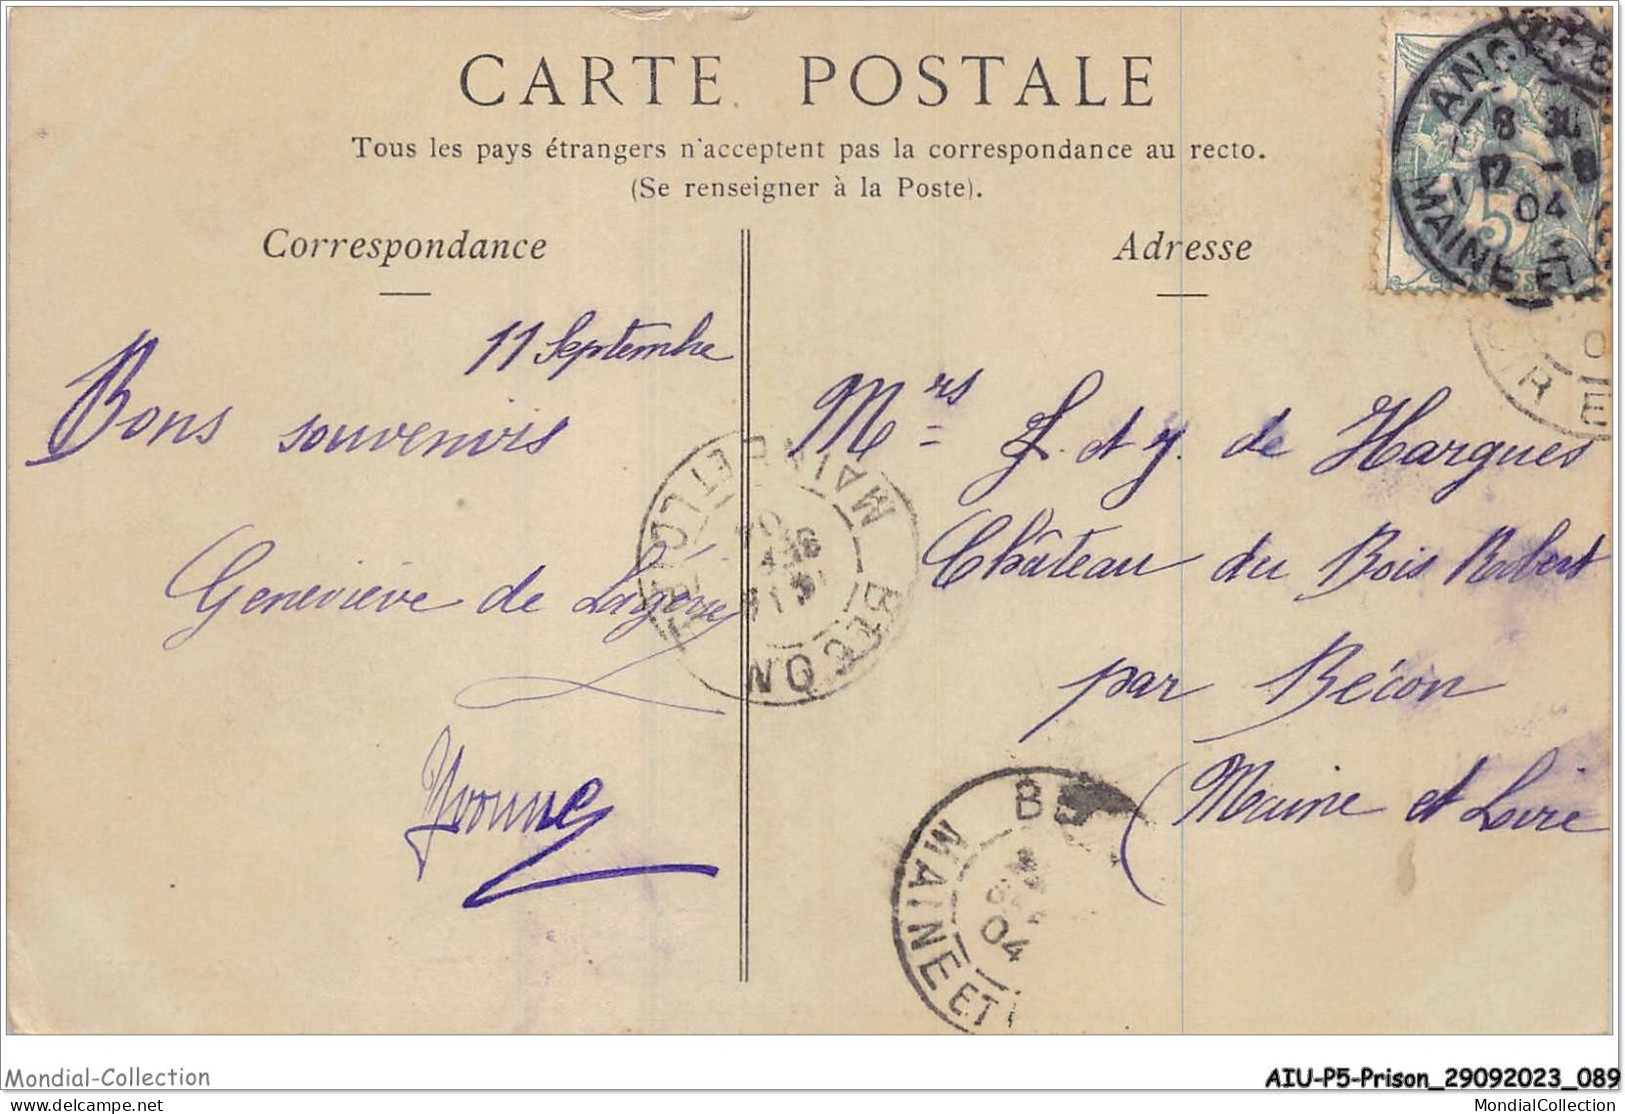 CARTE POSTALE
Tous les pays étrangers n'acceptent pas la correspondance au recto.
(Se renseigner à la Poste).
Correspondance
Adresse
11 Septembre
Bons souvenirs
Geneviève de
Yvonne
Mrs & de Hargues
Château du Bois Robert
par Bécon
(Maine et Loire
8 30
12 -9
04
MAINE ET
5
MAINE ET LOIRE
BÉCON
BÉ
MAINE ET
04
Mondial-Collection
AIU-P5-Prison_29092023_089
www.delcampe.net
MondialCollection